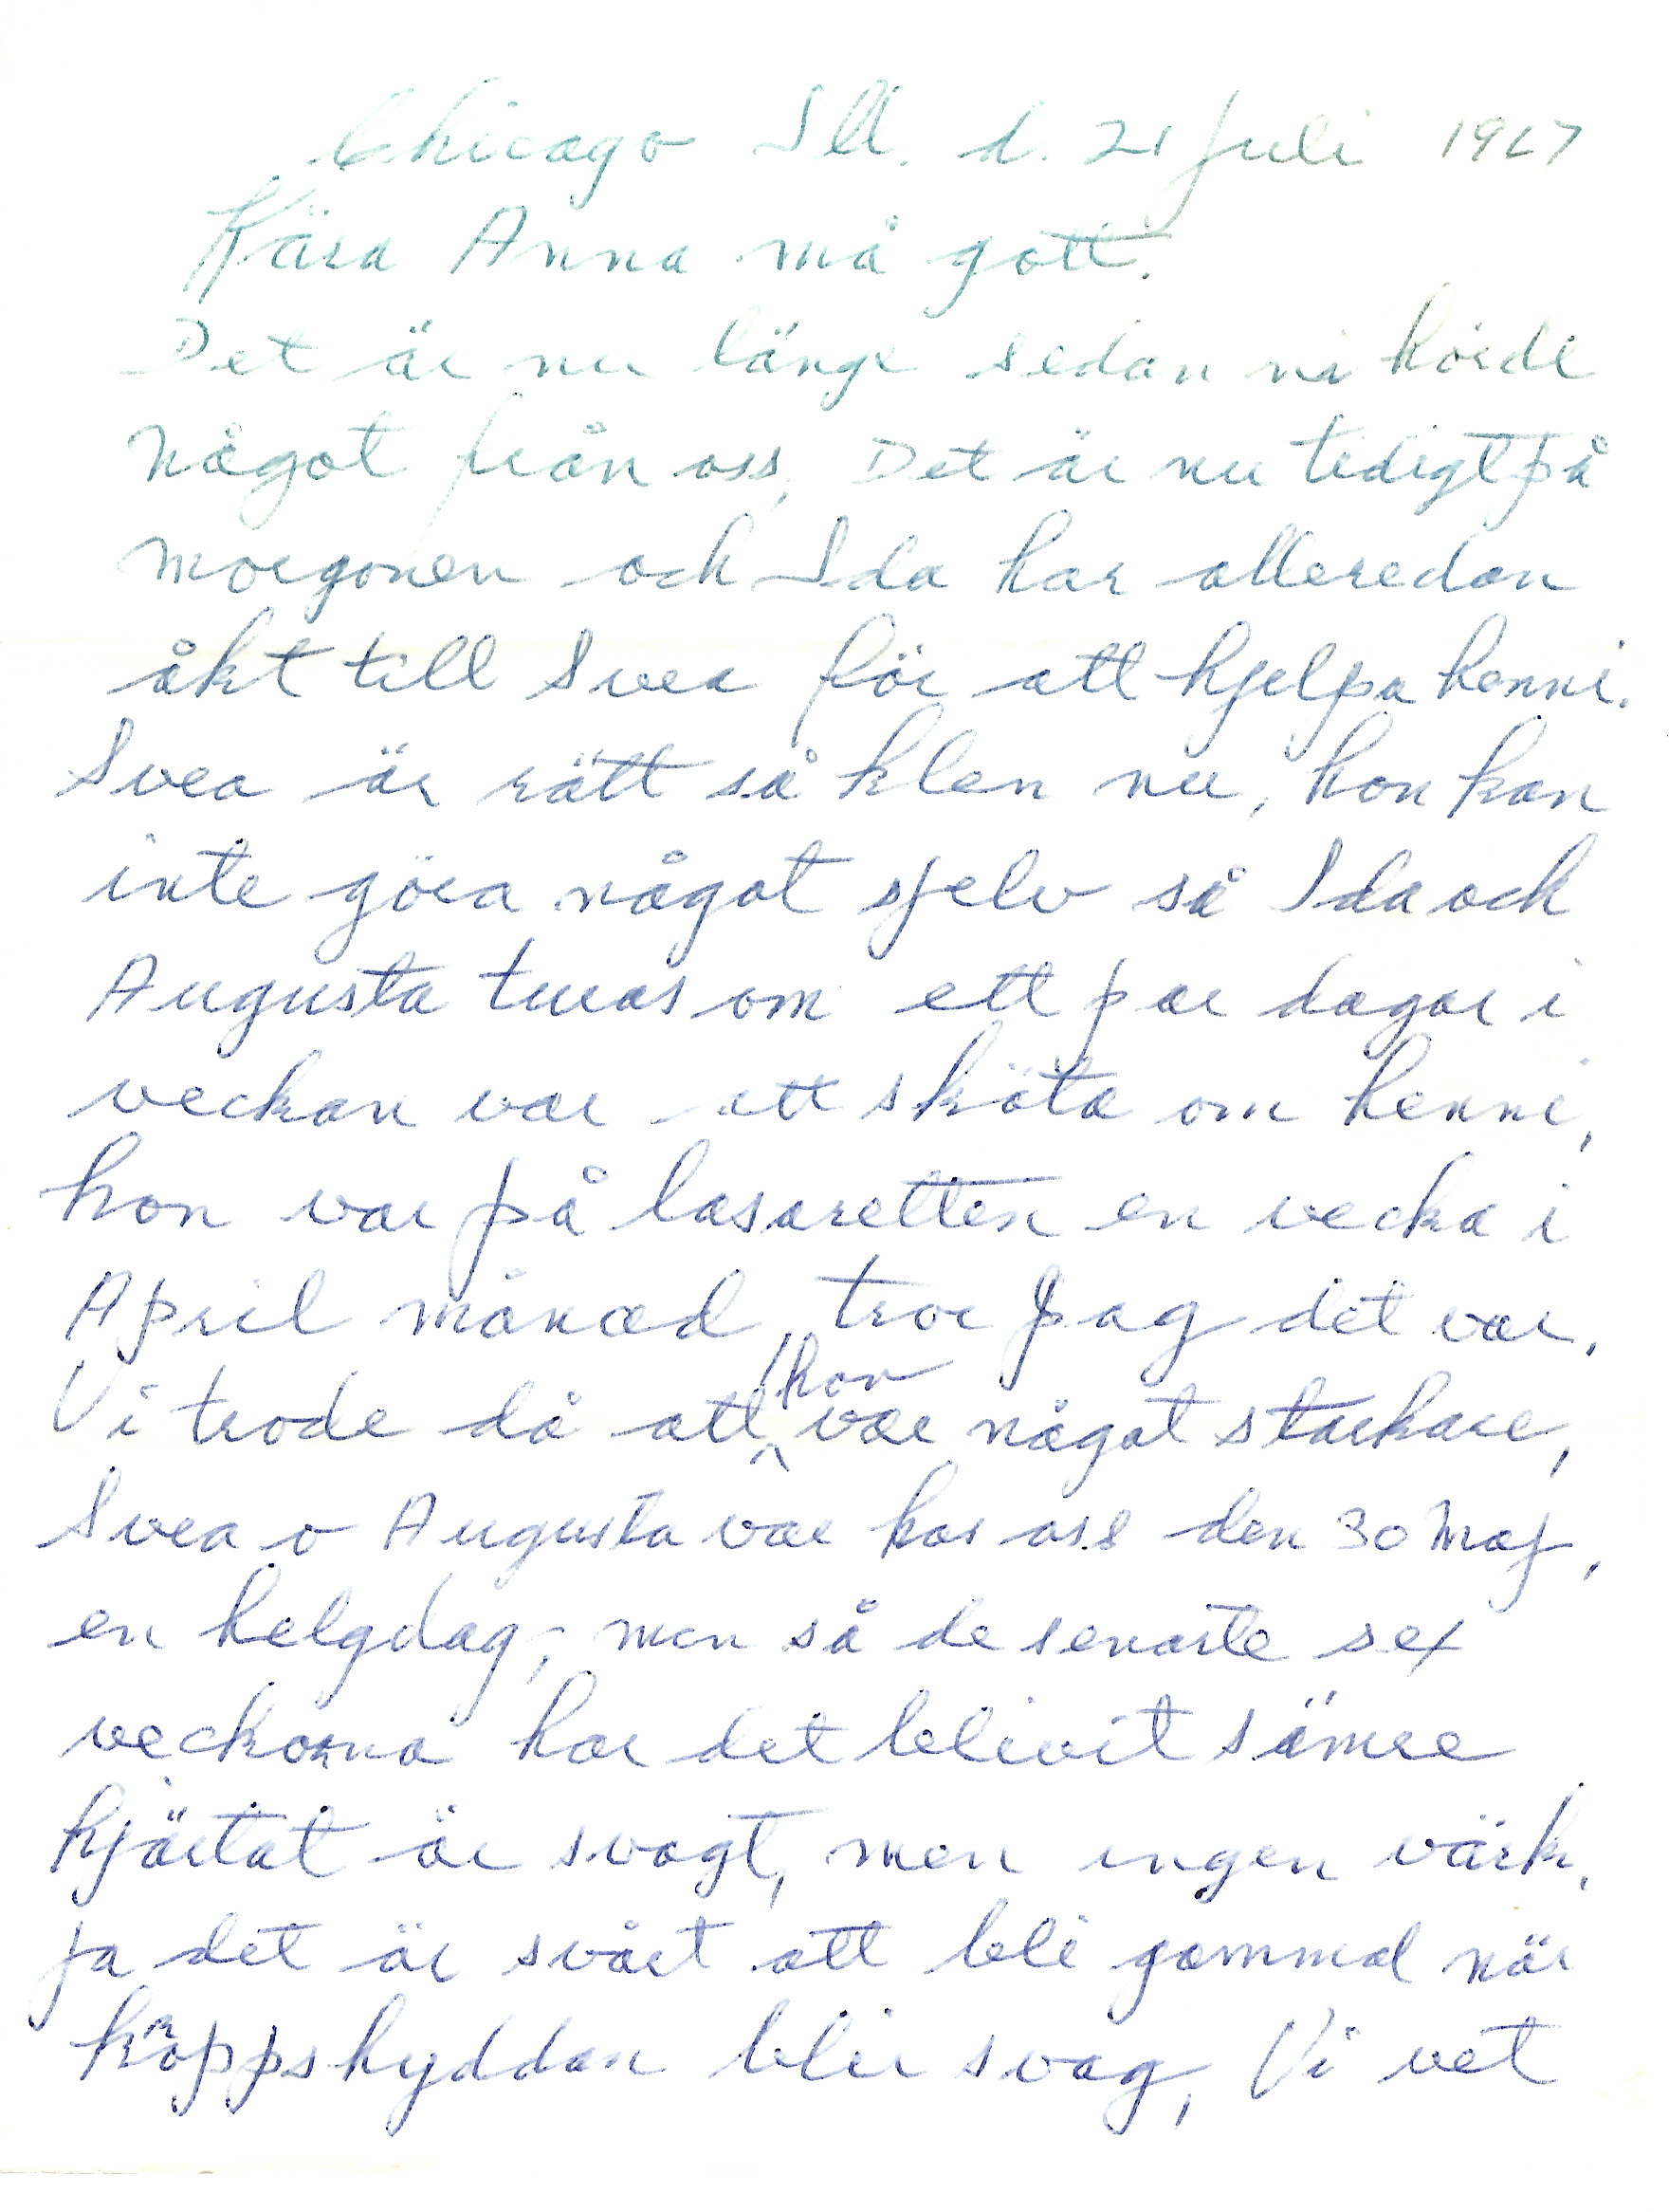 Chicago Ill. d. 21 Juli 1967
Kära Anna må gott!
Det är nu länge sedan ni hörde
något från oss, Det är nu tidigt på
morgonen och Ida har alleredan
åkt till Svea för att hjelpa henni.
Svea är rätt så klen nu, hon kan
inte göra något sjelv så Ida och
Augusta turas om ett par dagar i
veckan var att sköta om henni,
hon var på lasaretten en vecka i
April månad, tror jag det var.
Vi trode då att hon var något starkare,
Svea o Augusta var hos oss den 30 Maj,
en helgdag, men så de senaste sex
veckorna har det blivit sämre
hjärtat är svagt, men ingen värk,
ja det är svårt att bli gammal när
kroppshyddan blir svag, Vi vet